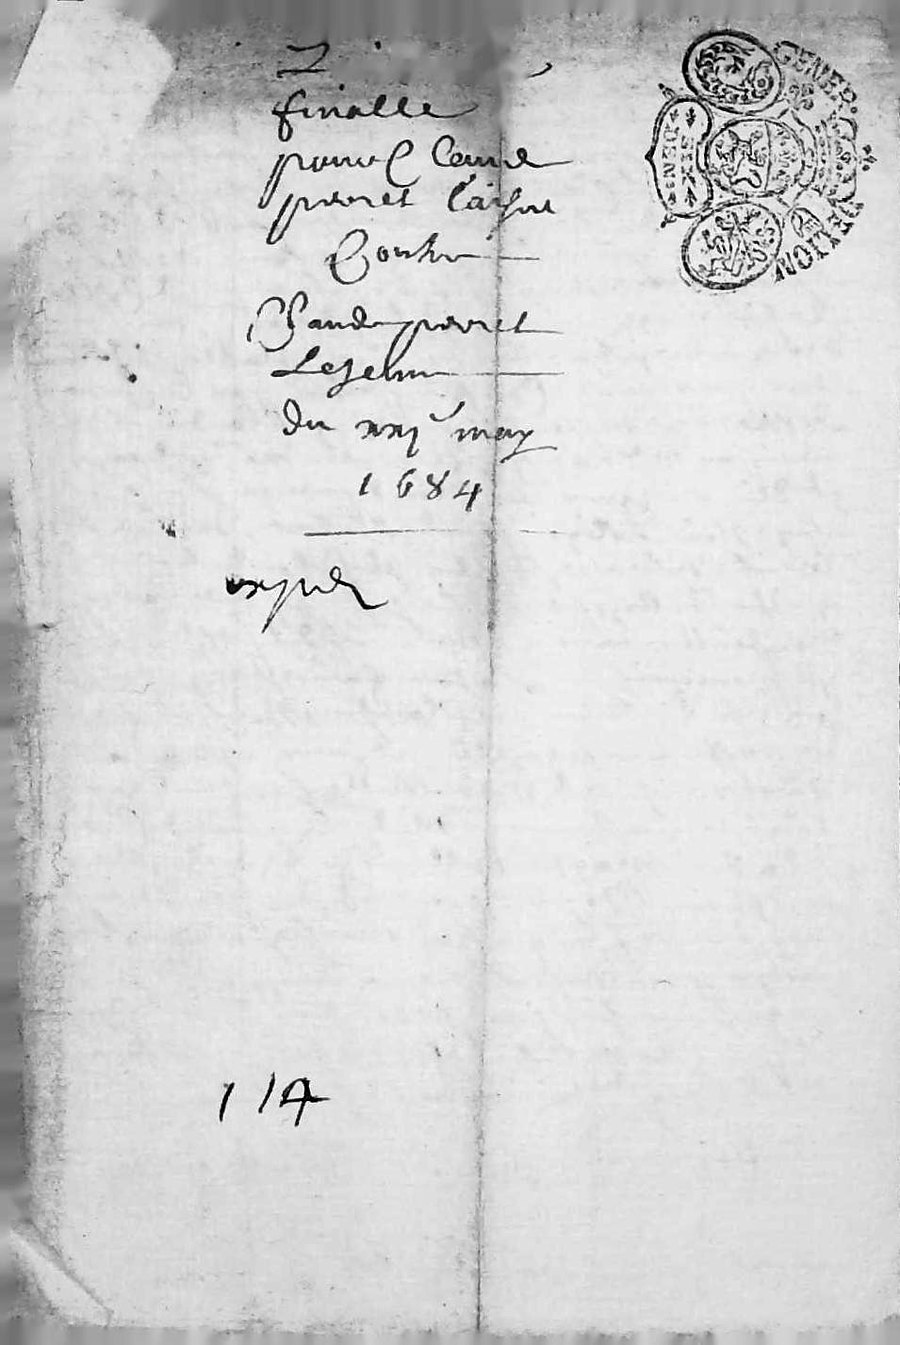 finalle
pour Claude
perret l'aisné
Contre
Claude perret
Le Jeune
du xxj^e may
1684
expedi
114
GENER. DE LION
SIX DEN.